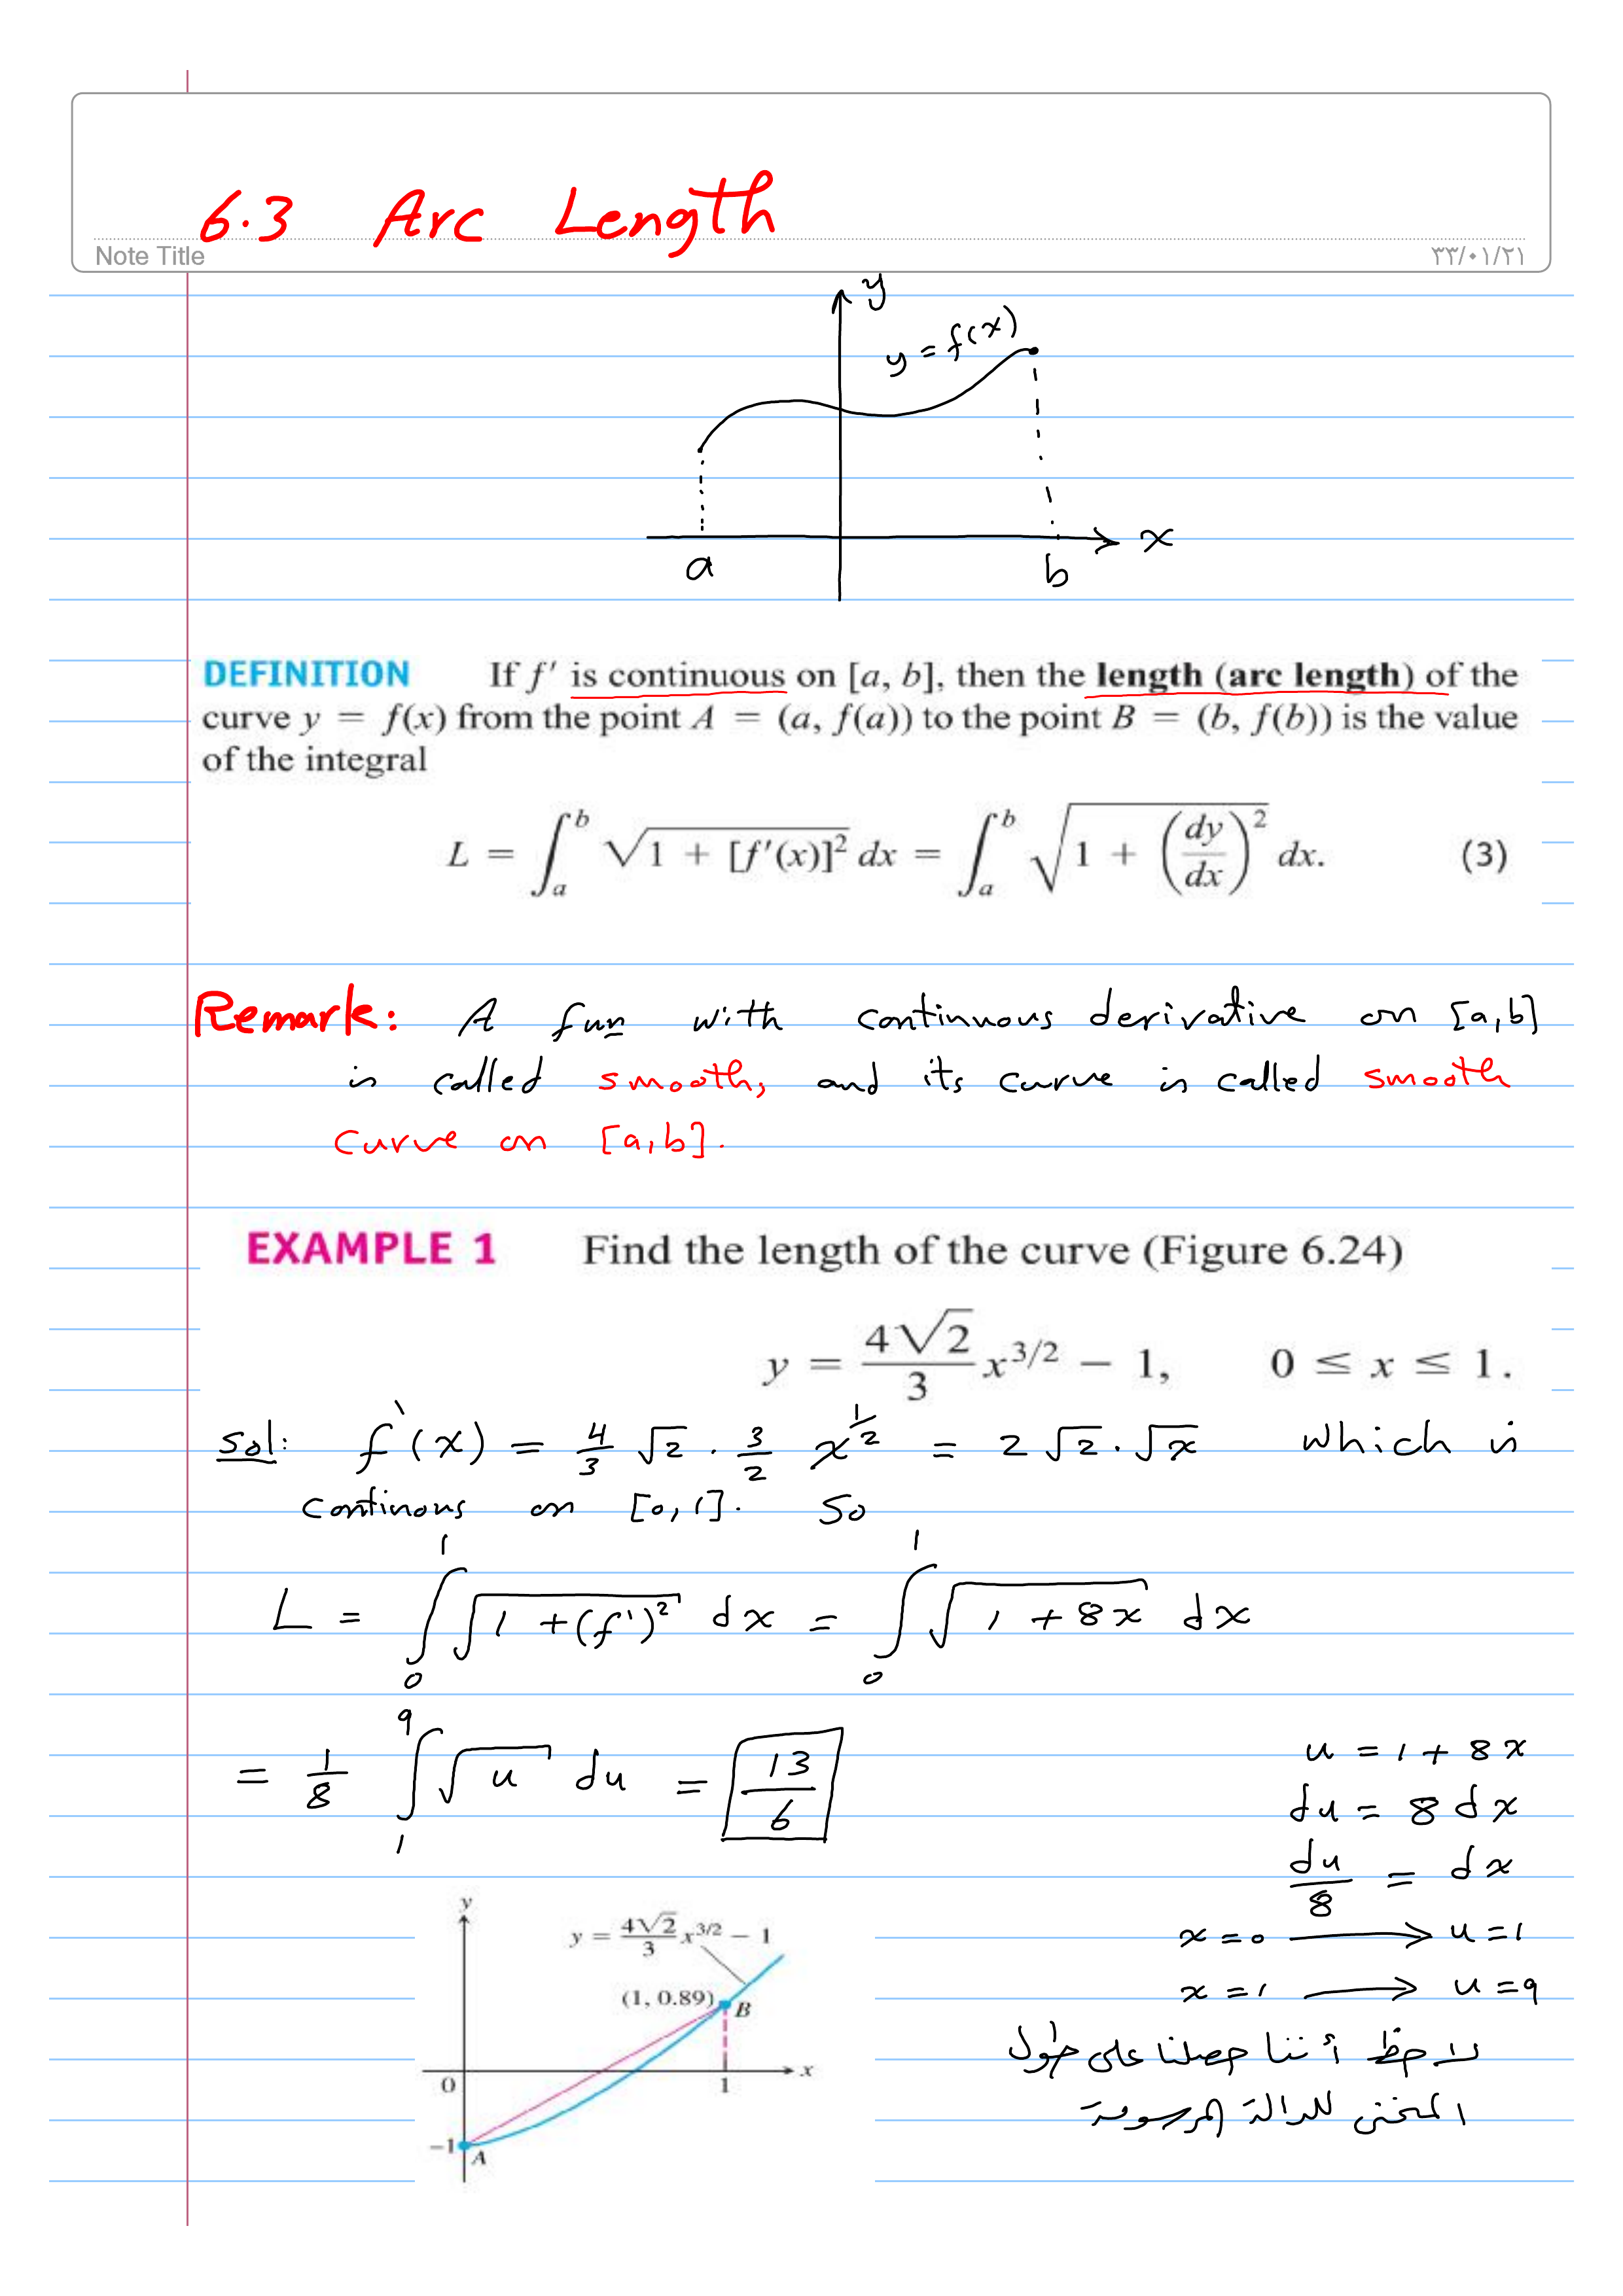 6.3 Arc Length
Note Title
٣٣/٠١/٢١
y
y = f(x)
x
a
b
DEFINITION If f′ is continuous on [a, b], then the length (arc length) of the
curve y = f(x) from the point A = (a, f(a)) to the point B = (b, f(b)) is the value
of the integral
L = ∫_a^b √(1 + [f′(x)]²) dx = ∫_a^b √(1 + (dy/dx)²) dx. (3)
Remark: A fun with continuous derivative on [a,b]
is called smooth, and its curve is called smooth
curve on [a,b].
EXAMPLE 1 Find the length of the curve (Figure 6.24)
y = (4√2/3) x^{3/2} − 1, 0 ≤ x ≤ 1.
Sol: f`(x) = 4/3 √2 · 3/2 x^{1/2} = 2 √2 · √x which is
continous on [0,1]. So
L = ∫_0^1 √(1 + (f')²) dx = ∫_0^1 √(1 + 8x) dx
= 1/8 ∫_1^9 √u du = 13/6
u = 1 + 8x
du = 8 dx
du/8 = dx
x = 0 → u = 1
x = 1 → u = 9
لاحظ أننا حصلنا على طول
المنحنى للدالة المرسومة
y
y = (4√2/3) x^{3/2} − 1
(1, 0.89)
B
0
1
x
−1
A